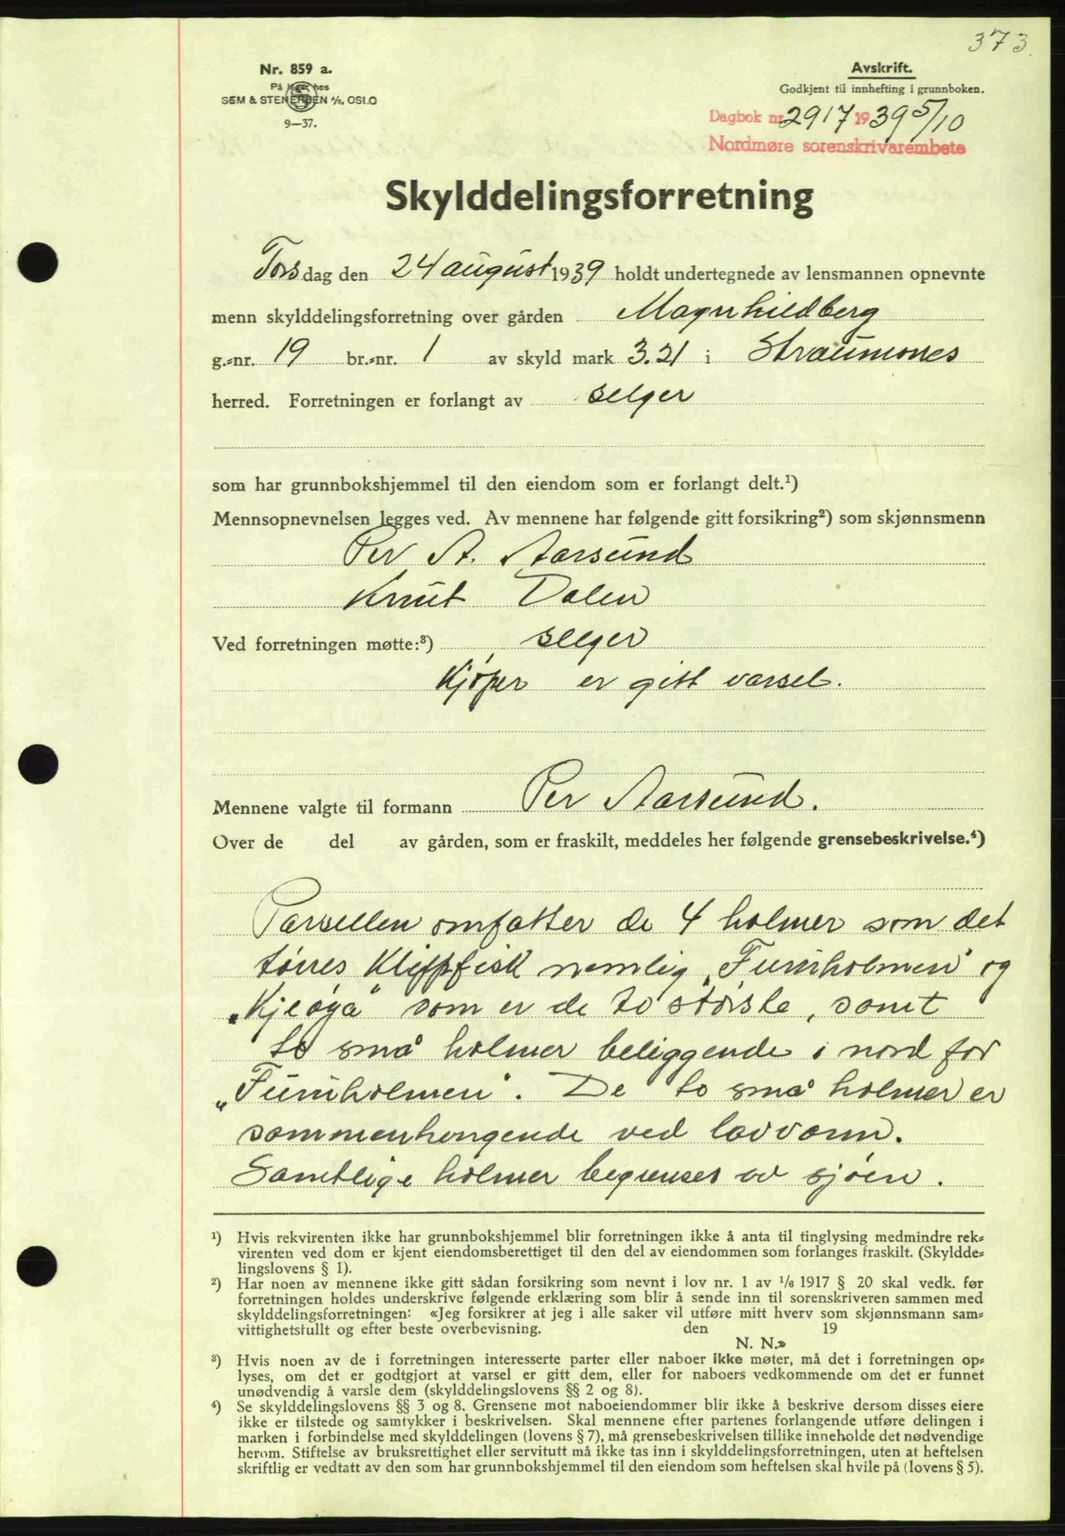 373.
Nr. 859 a.
På lager hos
SEM & STENERSEN A/S, OSLO
9—37.
Avskrift.
Godkjent til innhefting i grunnboken.
Dagbok nr. 2917 1939 5/10
Nordmøre sorenskrivarembete
Skylddelingsforretning
Torsdag den 24 august 1939 holdt undertegnede av lensmannen opnevnte
menn skylddelingsforretning over gården Magnhildberg
g.-nr. 19 br.-nr. 1 av skyld mark 3.21 i Straumsnes
herred. Forretningen er forlangt av selger
som har grunnbokshjemmel til den eiendom som er forlangt delt.¹)
Mennsopnevnelsen legges ved. Av mennene har følgende gitt forsikring²) som skjønnsmenn
Per A. Aarsund
Knut Dalen
Ved forretningen møtte:³) selger
Kjøper er gitt varsel.
Mennene valgte til formann Per Aarsund.
Over de del av gården, som er fraskilt, meddeles her følgende grensebeskrivelse.⁴)
Parsellen omfatter de 4 holmer som det
tørres klippfisk nemlig „Furuholmen" og
„Kjeøya" som er de to største, samt
to små holmer beliggende i nord for
„Furuholmen". De to små holmer er
sammenhengende ved lavvann.
Samtlige holmer begrenses av sjøen.
¹) Hvis rekvirenten ikke har grunnbokshjemmel blir forretningen ikke å anta til tinglysing medmindre rek-
virenten ved dom er kjent eiendomsberettiget til den del av eiendommen som forlanges fraskilt. (Skyldde-
lingslovens § 1).
²) Har noen av mennene ikke gitt sådan forsikring som nevnt i lov nr. 1 av 1/6 1917 § 20 skal vedk. før
forretningen holdes underskrive følgende erklæring som blir å sende inn til sorenskriveren sammen med
skylddelingsforretningen: «Jeg forsikrer at jeg i alle saker vil utføre mitt hverv som skjønnsmann sam-
vittighetsfullt og efter beste overbevisning. den 19
N. N.»
³) Hvis noen av de i forretningen interesserte parter eller naboer ikke møter, må det i forretningen op-
lyses, om det er godtgjort at varsel er gitt dem, eller for naboers vedkommende om det er funnet
unødvendig å varsle dem (skylddelingslovens §§ 2 og 8).
⁴) Se skylddelingslovens §§ 3 og 8. Grensene mot naboeiendommer blir ikke å beskrive dersom disses eiere
ikke er tilstede og samtykker i beskrivelsen. Skal mennene efter partenes forlangende utføre delingen i
marken i forbindelse med skylddelingen (lovens § 7), må grensebeskrivelsen tillike inneholde det nødvendige
herom. Stiftelse av bruksrettighet eller servitutt må ikke tas inn i skylddelingsforretningen, uten at heftelsen
skriftlig er vedtatt av den som har grunnbokshjemmel til den eiendom som heftelsen skal hvile på (lovens § 5).